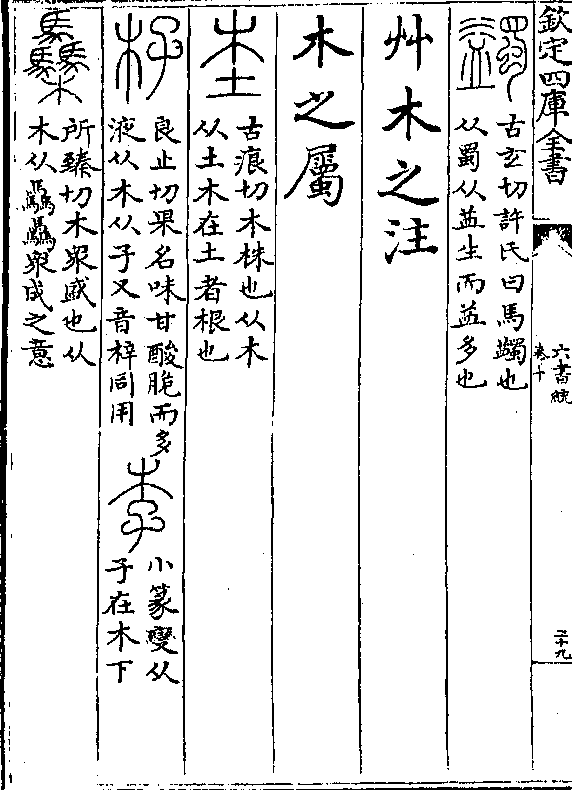 欽定四庫全書
六書統
卷十
蠲
古玄切許氏曰馬蠲也
从蜀从益生而益多也
艸木之注
木之屬
杢
古痕切木株也从木
从土木在土者根也
杍
良止切果名味甘酸脆而多
液从木从子又音梓同用
李
小篆變从
子在木下
所臻切木衆盛也从
木从驫驫衆成之意